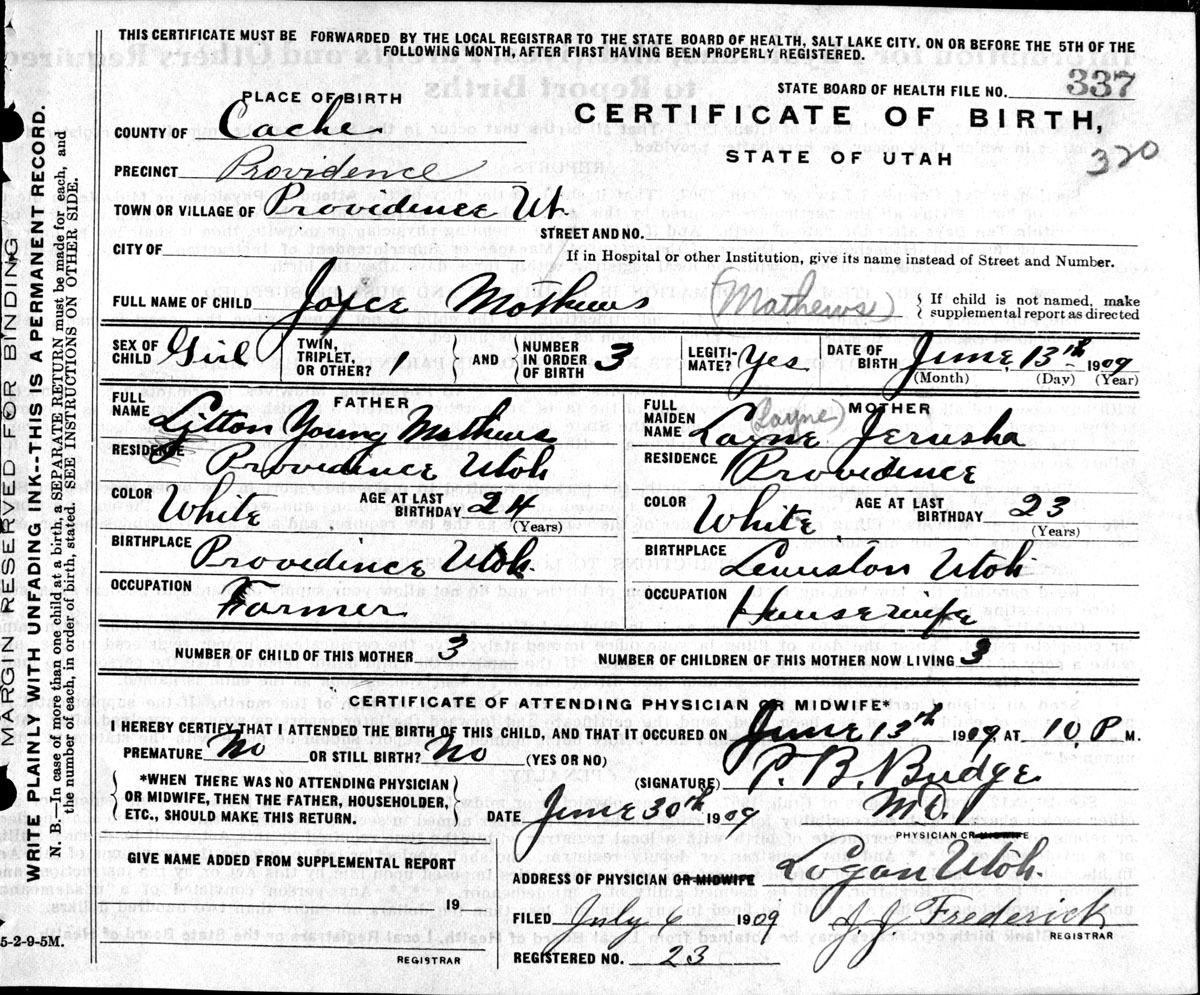 THIS CERTIFICATE MUST BE FORWARDED BY THE LOCAL REGISTRAR TO THE STATE BOARD OF HEALTH, SALT LAKE CITY. ON OR BEFORE THE 5TH OF THE
FOLLOWING MONTH, AFTER FIRST HAVING BEEN PROPERLY REGISTERED.
MARGIN RESERVED FOR BINDING
WRITE PLAINLY WITH UNFADING INK--THIS IS A PERMANENT RECORD.
N. B. In case of more than one child at a birth, a SEPARATE RETURN must be made for each, and
the number of each, in order of birth, stated. SEE INSTRUCTIONS ON OTHER SIDE.
STATE BOARD OF HEALTH FILE NO. 337
CERTIFICATE OF BIRTH,
STATE OF UTAH
320
PLACE OF BIRTH
COUNTY OF Cache
PRECINCT Providence
TOWN OR VILLAGE OF Providence Ut.
STREET AND NO.
CITY OF
If in Hospital or other Institution, give its name instead of Street and Number.
FULL NAME OF CHILD Joyce Mathews (Mathews) { If child is not named, make
supplemental report as directed
SEX OF CHILD Girl TWIN, TRIPLET, OR OTHER? } AND { NUMBER IN ORDER OF BIRTH 3 LEGITI-MATE? Yes DATE OF BIRTH June 13th 1909
(Month) (Day) (Year)
FATHER
FULL NAME Litton Young Mathews
RESIDENCE Providence Utah
COLOR White AGE AT LAST BIRTHDAY 24
(Years)
BIRTHPLACE Providence Utah.
OCCUPATION Farmer
MOTHER
FULL MAIDEN NAME Layne (Layne) Jerusha
RESIDENCE Providence
COLOR White AGE AT LAST BIRTHDAY 23
(Years)
BIRTHPLACE Lewiston Utah
OCCUPATION Housewife
NUMBER OF CHILD OF THIS MOTHER 3 NUMBER OF CHILDREN OF THIS MOTHER NOW LIVING 3
CERTIFICATE OF ATTENDING PHYSICIAN OR MIDWIFE*
I HEREBY CERTIFY THAT I ATTENDED THE BIRTH OF THIS CHILD, AND THAT IT OCCURED ON June 13th 1909 AT 10 P M.
PREMATURE No OR STILL BIRTH? No (YES OR NO)
{ *WHEN THERE WAS NO ATTENDING PHYSICIAN
OR MIDWIFE, THEN THE FATHER, HOUSEHOLDER,
ETC., SHOULD MAKE THIS RETURN. }
(SIGNATURE) P. B. Budge
M.D.
DATE June 30th 1909
PHYSICIAN OR MIDWIFE
GIVE NAME ADDED FROM SUPPLEMENTAL REPORT
19
REGISTRAR
ADDRESS OF PHYSICIAN OR MIDWIFE Logan Utah
FILED July 6 1909 J. J. Frederick
REGISTRAR
REGISTERED NO. 23
5-2-9-5M.